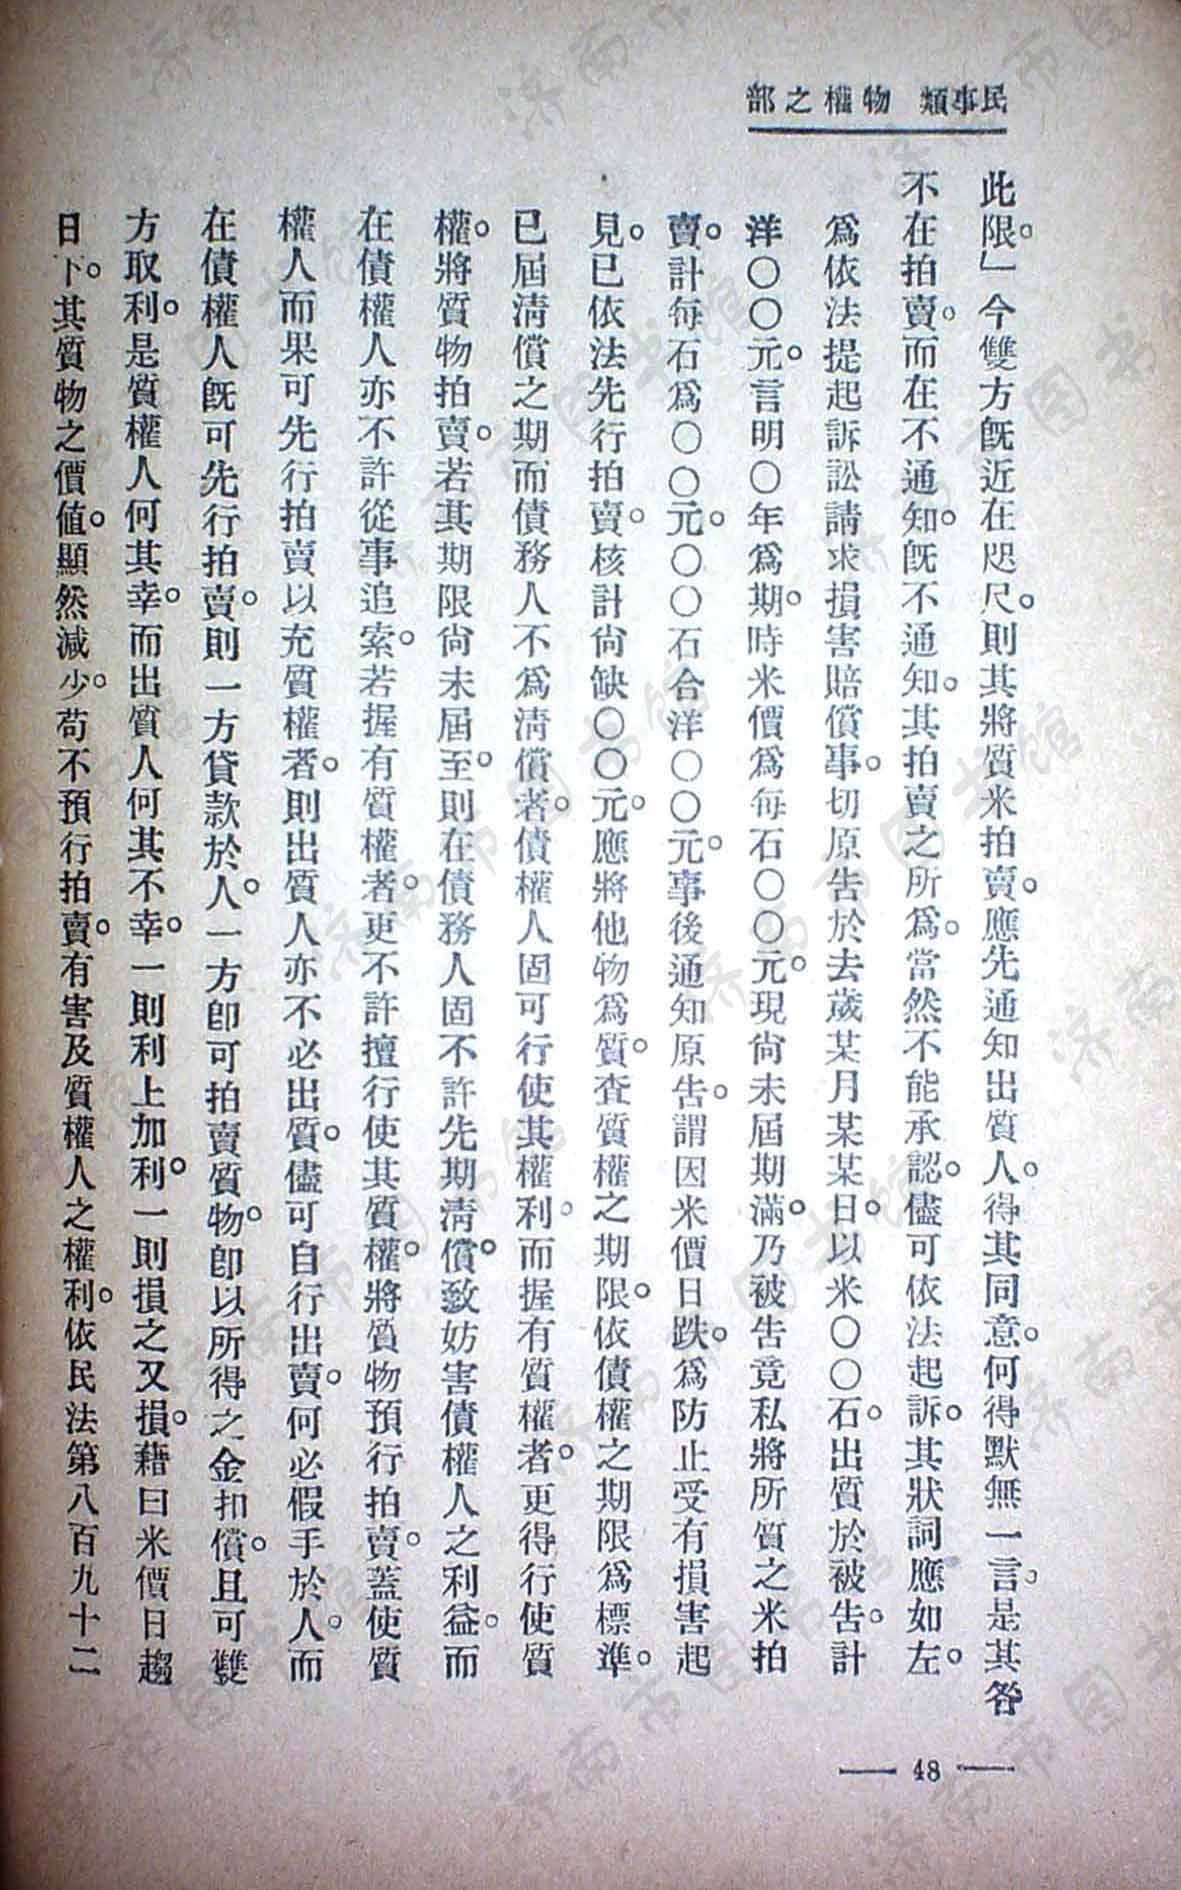 民事類　物權之部
此限。」今雙方既近在咫尺。則其將質米拍賣。應先通知出質人。得其同意。何得默無一言。是其咎
不在拍賣。而在不通知。既不通知。其拍賣之所爲。當然不能承認。儘可依法起訴。其狀詞應如左。
爲依法提起訴訟請求損害賠償事。切原告於去歲某月某某日。以米〇〇石。出質於被告。計
洋〇〇元。言明〇年爲期。時米價爲每石〇〇元。現尚未屆期滿。乃被告竟私將所質之米拍
賣。計每石爲〇〇元。〇〇石合洋〇〇元。事後通知原告。謂因米價日跌。爲防止受有損害起
見。已依法先行拍賣。核計尚缺〇〇元。應將他物爲質。查質權之期限。依債權之期限爲標準。
已屆清償之期而債務人不爲清償者。債權人固可行使其權利。而握有質權者。更得行使質
權。將質物拍賣。若其期限尚未屆至。則在債務人固不許先期清償。致妨害債權人之利益。而
在債權人亦不許從事追索。若握有質權者。更不許擅行使其質權。將質物預行拍賣。蓋使質
權人而果可先行拍賣以充質權者。則出質人亦不必出質。儘可自行出賣。何必假手於人。而
在債權人既可先行拍賣。則一方貸款於人。一方卽可拍賣質物。卽以所得之金扣償。且可雙
方取利。是質權人何其幸。而出質人何其不幸。一則利上加利。一則損之又損。藉曰米價日趨
日下。其質物之價値。顯然減少。苟不預行拍賣。有害及質權人之權利。依民法第八百九十二
— 48 —
济南市图书馆